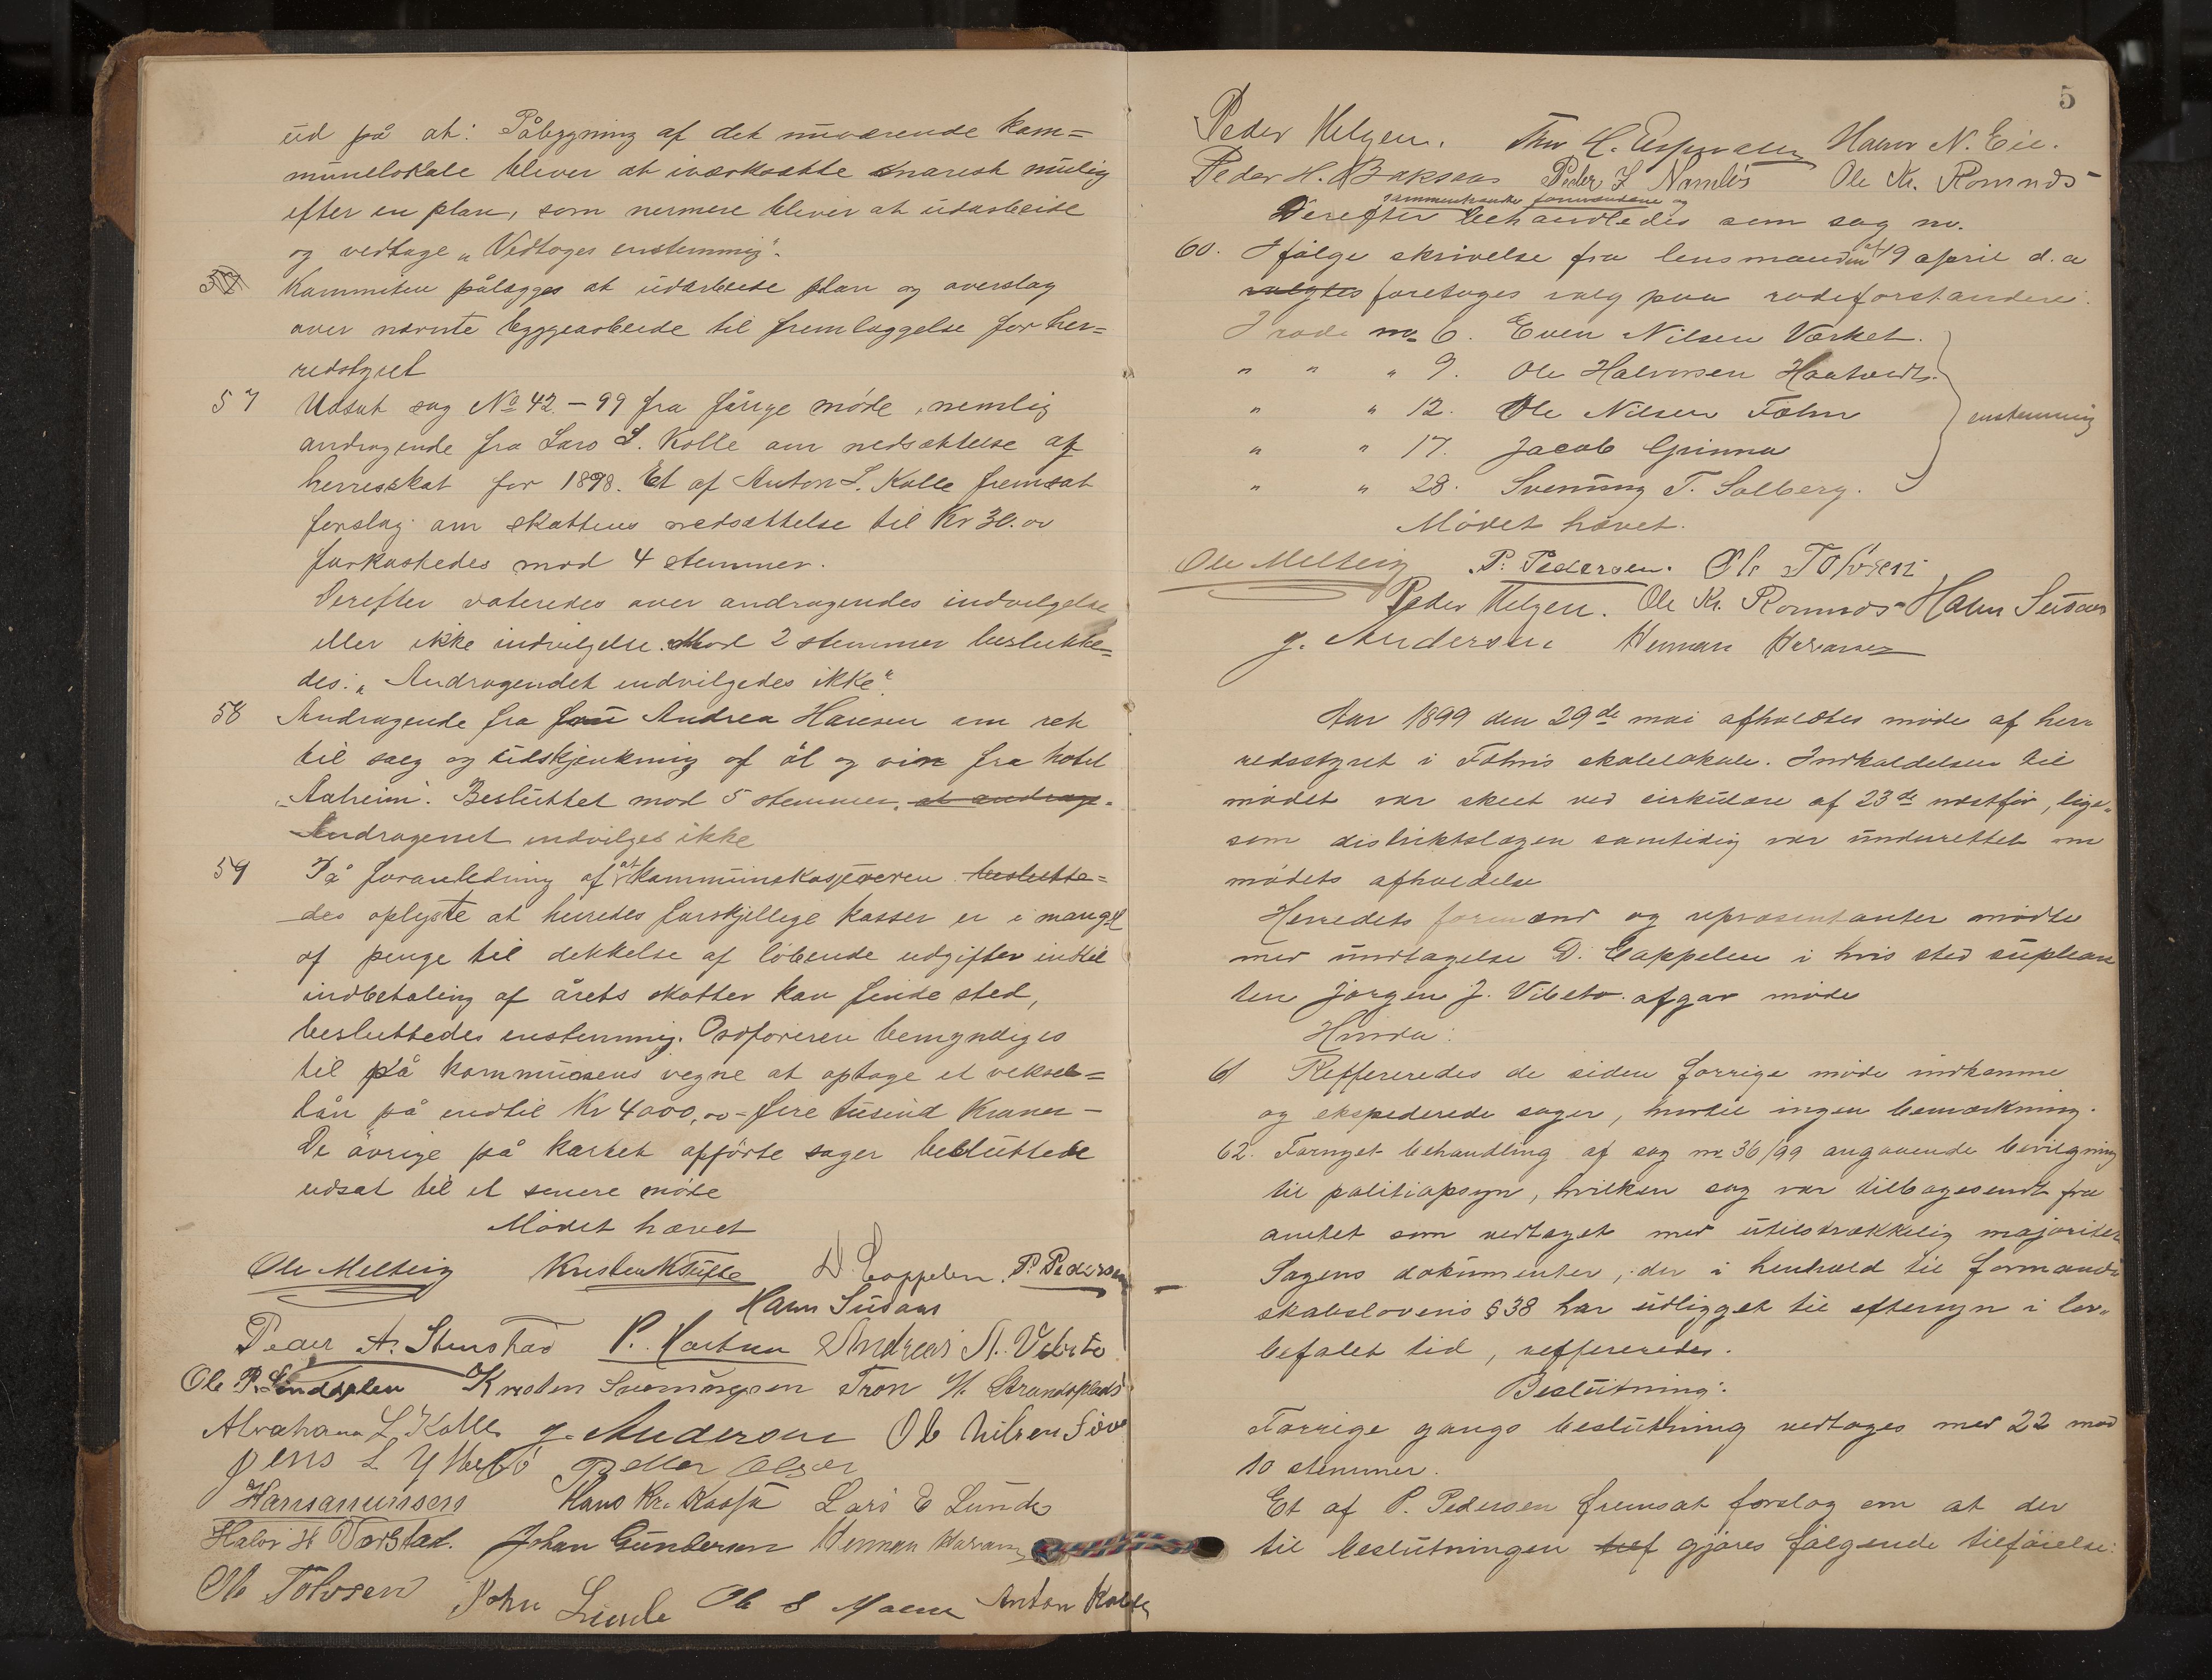 ud på at: Påbygning af det nuværende kom=
munelokale bliver at iværksætte snarest mulig
efter en plan, som nermere bliver at udarbeide
og vedtage „Vedtoges enstemmig".
Kommiteen pålægges at udarbeide plan og overslag
over nævnte byggearbeide til fremlæggelse for her=
redstyret
57 Udsat sag No 42 – 99 fra forige møde, nemlig
andragende fra Lars S. Kolle om nedsættelse af
herredskat for 1898. Et af Anton L. Kolle fremsat
forslag om skattens nedsættelse til Kr 30.00
forkastedes mod 4 stemmer.
Derefter voteredes over andragendes indvilgelse
eller ikke indvilgelse. Mod 2 stemmer beslutte=
des: „Andragendet indvilgedes ikke"
58 Andragende fra Andrea Hansen om ret
til salg og udskjenkning af øl og vin fra hotel
„Aaheim". Besluttet mod 5 stemmer, at andrag=
Andragenet indvilges ikke
59 På foranledning af at kommunekassereren beslutte=
des oplyste at herredes forskjellige kasser er i mangel
af penge til dekkelse af løbende udgifter indtil
indbetaling af årets skatter kan finde sted,
besluttedes enstemmig. Ordføreren bemyndiges
til på kommunens vegne at optage et veksel=
lån på indtil Kr 4000,00 – fire tusind Kroner –
De øvrige på kartet opførte sager besluttede
udsat til et senere møde
Mødet hævet
Ole Melteig Kristen K Tufte D. Cappelen. P. Pedersen
Peder A. Stenstad P. Andreas A. Vibeto
Ole P. Kristen Svenningsen Tron H. Strandsplads
Abraham L. Kolle g. Andersen Ole Nilsen
Jens L Petter Olsen
Hans Kr. Kaasa Lars E Lunde
Halvor H Johan Gundersen Herman
Ole Tolvsen John Lunde Ole S Anton Kolle
5
Peder Helgen. Thor H. Halvor N. Eie.
Peder H. Peder J Ole Kr. Romnes
sammentraadte formændene og
Derefter behandledes som sag no.
60. Ifølge skrivelse fra lensmanden af 19 april d.a
valgtes foretoges valg paa rodeforstandere:
I rode no 6. Even Nilsen Værket.
" " " 9. Ole Halvorsen Haatvedt.
" " 12. Ole Nilsen Folm
" " 17. Jacob Grinna
" " 28. Svenung T. Solberg.
enstemmig
Mødet hævet.
Ole Melteig P. Pedersen. Ole Tolvsen
Peder Helgen. Ole Kr. Romnes
g. Andersen Herman
Aar 1899 den 29de mai afholdtes møde af her=
redsstyret i Folms skolelokale. Indkaldelsen til
mødet var skeet ved cirkulære af 23de næstfør, lige=
som distriktslægen samtidig var underrettet om
mødets afholdelse
Herredets formænd og repræsentanter mødte
med undtagelse D. Cappelen i hvis sted suplean
ten Jørgen J. Vibeto. afgav møde
61 Reffereredes de siden forrige møde indkomne
og ekspederede sager, hvortil ingen bemærkning.
62. Fornyet behandling af sag no 36/99 angaaende bevilgning
til politiopsyn, hvilken sag var tilbagesendt fra
amtet som vedtaget med utilstrækkelig majoritet
Sagens dokumenter, der i henhold til formands
skabslovens § 38 har udligget til eftersyn i lov=
befalet tid, reffereredes.
Beslutning:
Forrige gangs beslutning vedtoges med 22 mod
10 stemmer.
Et af P. Pedersen fremsat forslag om at der
til beslutningen gjøres følgende tilføielse: